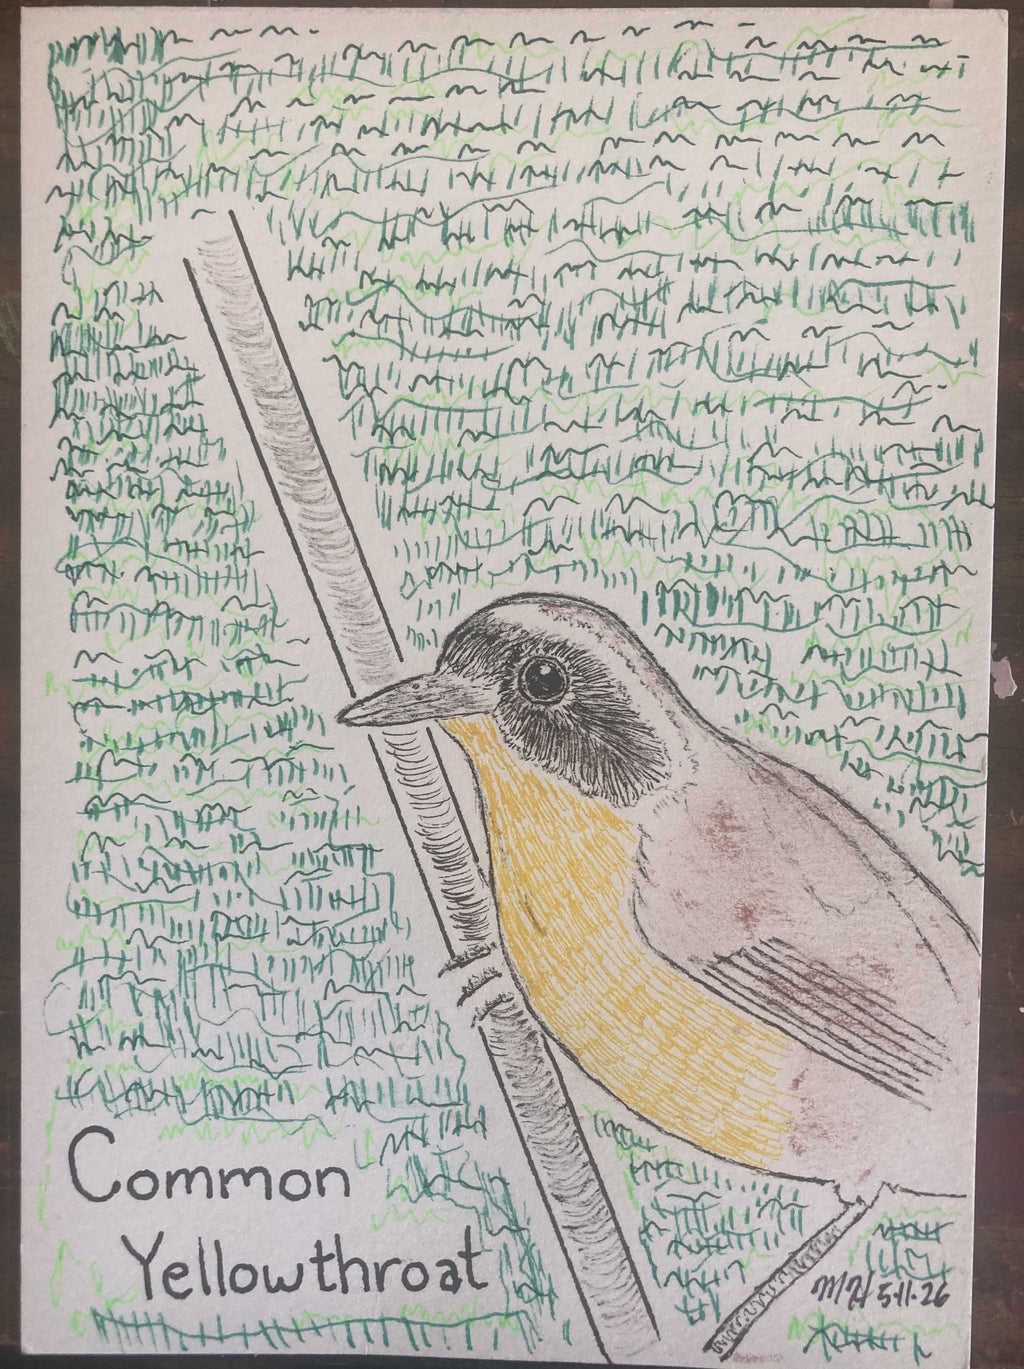 Common
Yellowthroat
MH 5·11·26